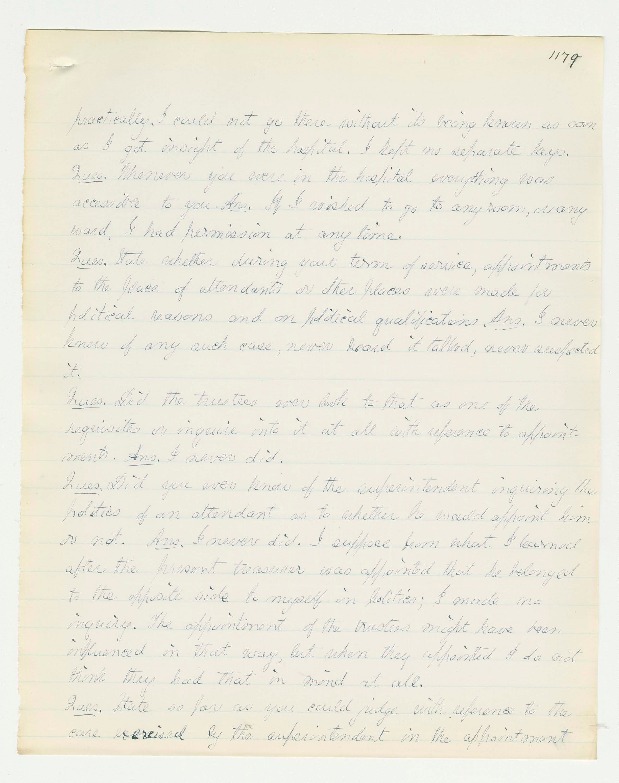 1179
practically I could not go there without its being known as soon
as I got insight of the hospital. I kept no separate keys.
Ques. Whenever you were in the hospital everything was
accessible to you Ans. If I wished to go to any room, in any
ward, I had permission at any time.
Ques. State whether during your term of service, appointments
to the place of attendants or other places were made for
political reasons and on political qualifications Ans. I never
knew of any such case, never heard it talked, never suspected
it.
Ques. Did the trustees ever look to that as one of the
requisites or inquire into it at all with reference to appoint-
ments. Ans. I never did.
Ques. Did you ever know of the superintendent inquiring the
politics of an attendant as to whether he would appoint him
or not. Ans. I never did. I suppose from what I learned
after the present treasurer was appointed that he belonged
to the opposite side to myself in politics; I made no
inquiry. The appointment of the trustees might have been
influenced in that way, but when they appointed I do not
think they had that in mind at all.
Ques. State so far as you could judge with reference to the
care exercised by the superintendent in the appointment